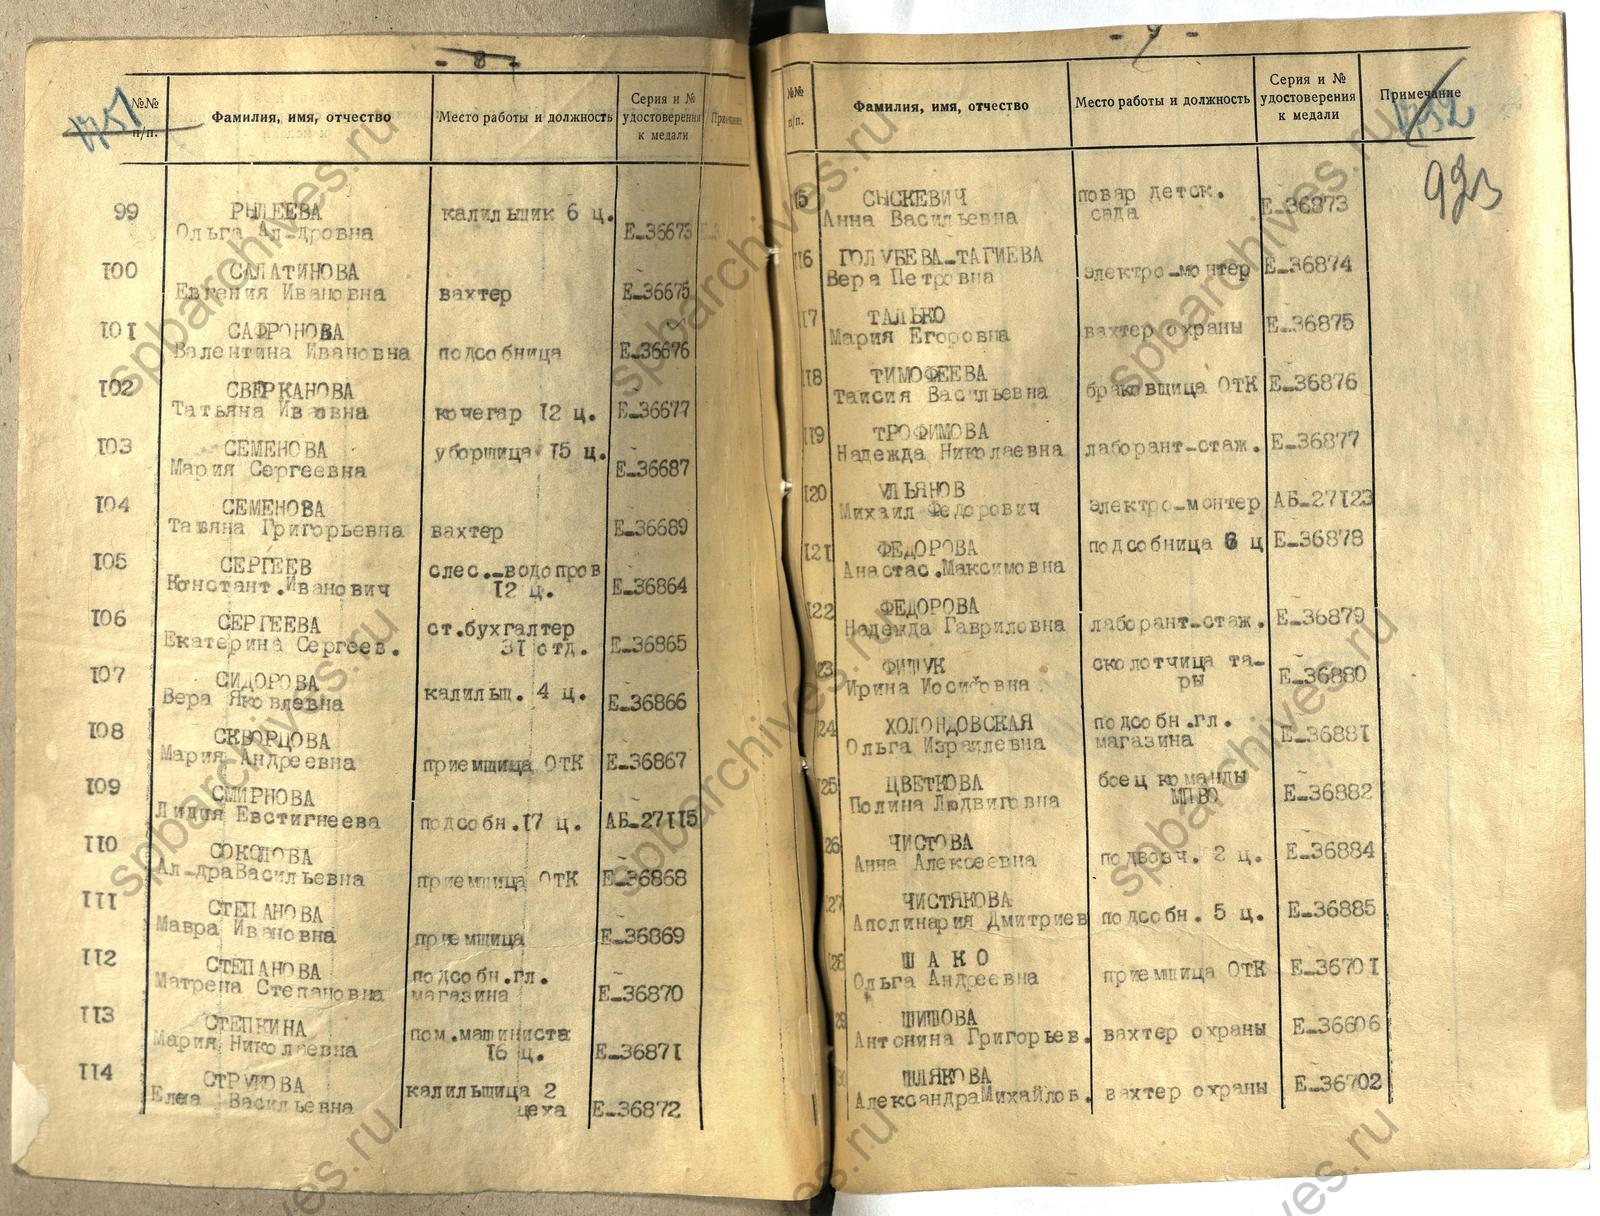 - 8 -
1751
№№
п/п.
Фамилия, имя, отчество
Место работы и должность
Серия и №
удостоверения
к медали
Примечание
99
РЫЛЕЕВА
Ольга Ал-дровна
калильщик 6 ц.
Е-36673
100
САЛАТИНОВА
Евгения Ивановна
вахтер
Е-36675
101
САФРОНОВА
Валентина Ивановна
подсобница
Е-36676
102
СВЕРКАНОВА
Татьяна Ивановна
кочегар 12 ц.
Е-36677
103
СЕМЕНОВА
Мария Сергеевна
уборщица 15 ц.
Е-36687
104
СЕМЕНОВА
Татьяна Григорьевна
вахтер
Е-36689
105
СЕРГЕЕВ
Констант.Иванович
слес.-водопров
12 ц.
Е-36864
106
СЕРГЕЕВА
Екатерина Сергеев.
ст.бухгалтер
31 отд.
Е-36865
107
СИДОРОВА
Вера Яковлевна
калильщ. 4 ц.
Е-36866
108
СКВОРЦОВА
Мария Андреевна
приемщица ОТК
Е-36867
109
СМИРНОВА
Лидия Евстигнеева
подсобн.17 ц.
АБ-27115
110
СОКОЛОВА
Ал-драВасильевна
приемщица ОТК
Е-36868
111
СТЕПАНОВА
Мавра Ивановна
приемщица
Е-36869
112
СТЕПАНОВА
Матрена Степановна
подсобн.гл.
магазина
Е-36870
113
СТЕПКИНА
Мария Николаевна
пом.машиниста
16 ц.
Е-36871
114
СТРУКОВА
Елена Васильевна
калильщица 2
цеха
Е-36872
- 9 -
1752
923
№№
п/п.
Фамилия, имя, отчество
Место работы и должность
Серия и №
удостоверения
к медали
Примечание
15
СЫСКЕВИЧ
Анна Васильевна
повар детск.
сада
Е-36873
116
ГОЛУБЕВА-ТАГИЕВА
Вера Петровна
электро-монтер
Е-36874
117
ТАЛЬКО
Мария Егоровна
вахтер охраны
Е-36875
118
ТИМОФЕЕВА
Таисия Васильевна
браковщица ОТК
Е-36876
119
ТРОФИМОВА
Надежда Николаевна
лаборант-стаж.
Е-36877
120
УЛЬЯНОВ
Михаил Федорович
электро-монтер
АБ-27123
121
ФЕДОРОВА
Анастас.Максимовна
подсобница 6 ц
Е-36878
122
ФЕДОРОВА
Надежда Гавриловна
лаборант-стаж.
Е-36879
23
ФИЩУК
Ирина Иосифовна
сколотчица та-
ры
Е-36880
24
ХОЛОНДОВСКАЯ
Ольга Израилевна
подсобн.гл.
магазина
Е-36881
25
ЦВЕТКОВА
Полина Людвиговна
боец команды
МПВО
Е-36882
26
ЧИСТОВА
Анна Алексеевна
подвозч. 2 ц.
Е-36884
27
ЧИСТЯКОВА
Аполинария Дмитриев
подсобн. 5 ц.
Е-36885
28
ШАКО
Ольга Андреевна
приемщица ОТК
Е-36701
29
ШИШОВА
Антонина Григорьев.
вахтер охраны
Е-36606
ШЛЯКОВА
АлександраМихайлов.
вахтер охраны
Е-36702
spbarchives.ru
spbarchives.ru
spbarchives.ru
spbarchives.ru
spbarchives.ru
spbarchives.ru